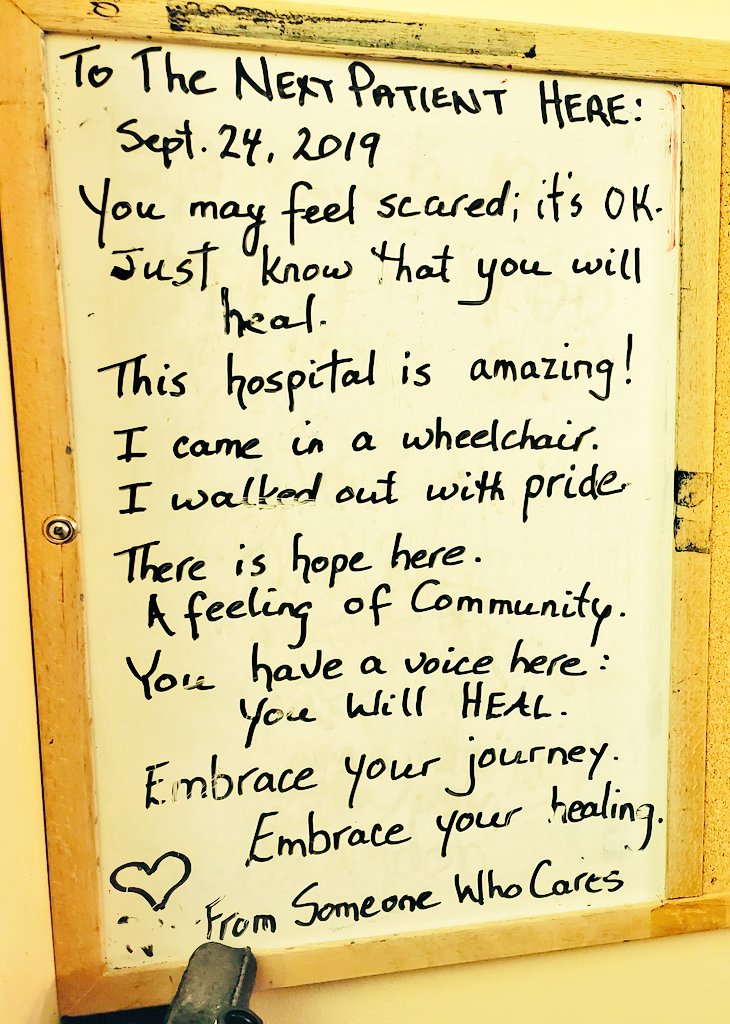 To The Next Patient Here:
Sept. 24, 2019
You may feel scared; it's OK.
Just know that you will
heal.
This hospital is amazing!
I came in a wheelchair.
I walked out with pride
There is hope here.
A feeling of Community.
You have a voice here:
You Will HEAL.
Embrace your journey.
Embrace your healing.
From Someone Who Cares